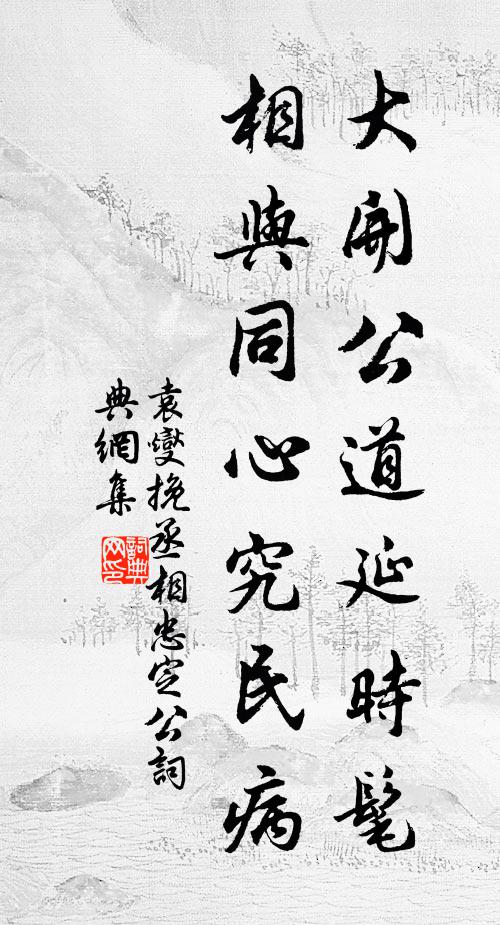 大開公道延時髦
相與同心究民病
袁燮挽丞相忠定公詞
典網集
詞典網印